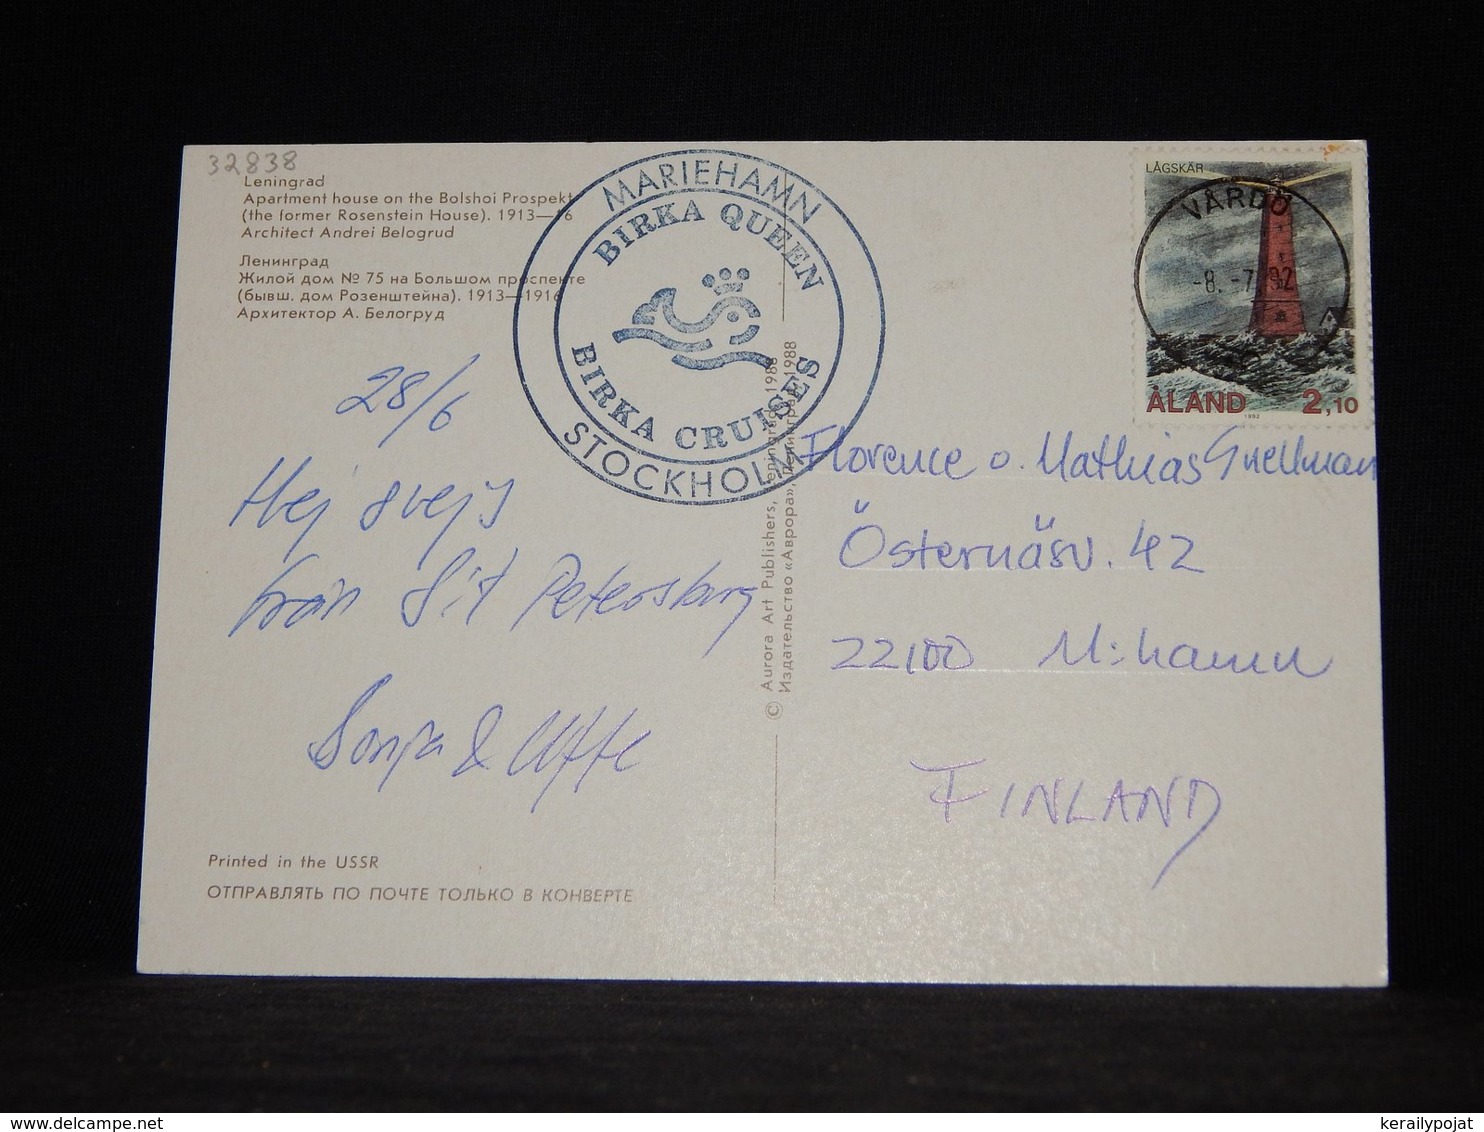 32838
Leningrad
Apartment house on the Bolshoi Prospekt
(the former Rosenstein House). 1913—16
Architect Andrei Belogrud
Ленинград
Жилой дом № 75 на Большом проспекте
(бывш. дом Розенштейна). 1913—1916
Архитектор А. Белогруд
MARIEHAMN
BIRKA QUEEN
BIRKA CRUISES
STOCKHOLM
LÅGSKÄR
VÅRDÖ
-8.-7.92
ÅLAND 1992 2,10
28/6
Hej
från S:t Petersburg
Sonja & Uffe
© Aurora Art Publishers, Leningrad, 1988
Издательство «Аврора», Ленинград, 1988
Florence o. Mathias Gnellman
Östernäsv. 42
22100 M:hamn
FINLAND
Printed in the USSR
ОТПРАВЛЯТЬ ПО ПОЧТЕ ТОЛЬКО В КОНВЕРТЕ
kerailypojat